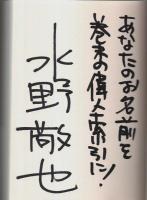 あなたのお名前を
巻末の偉人索引に!
水野敬也